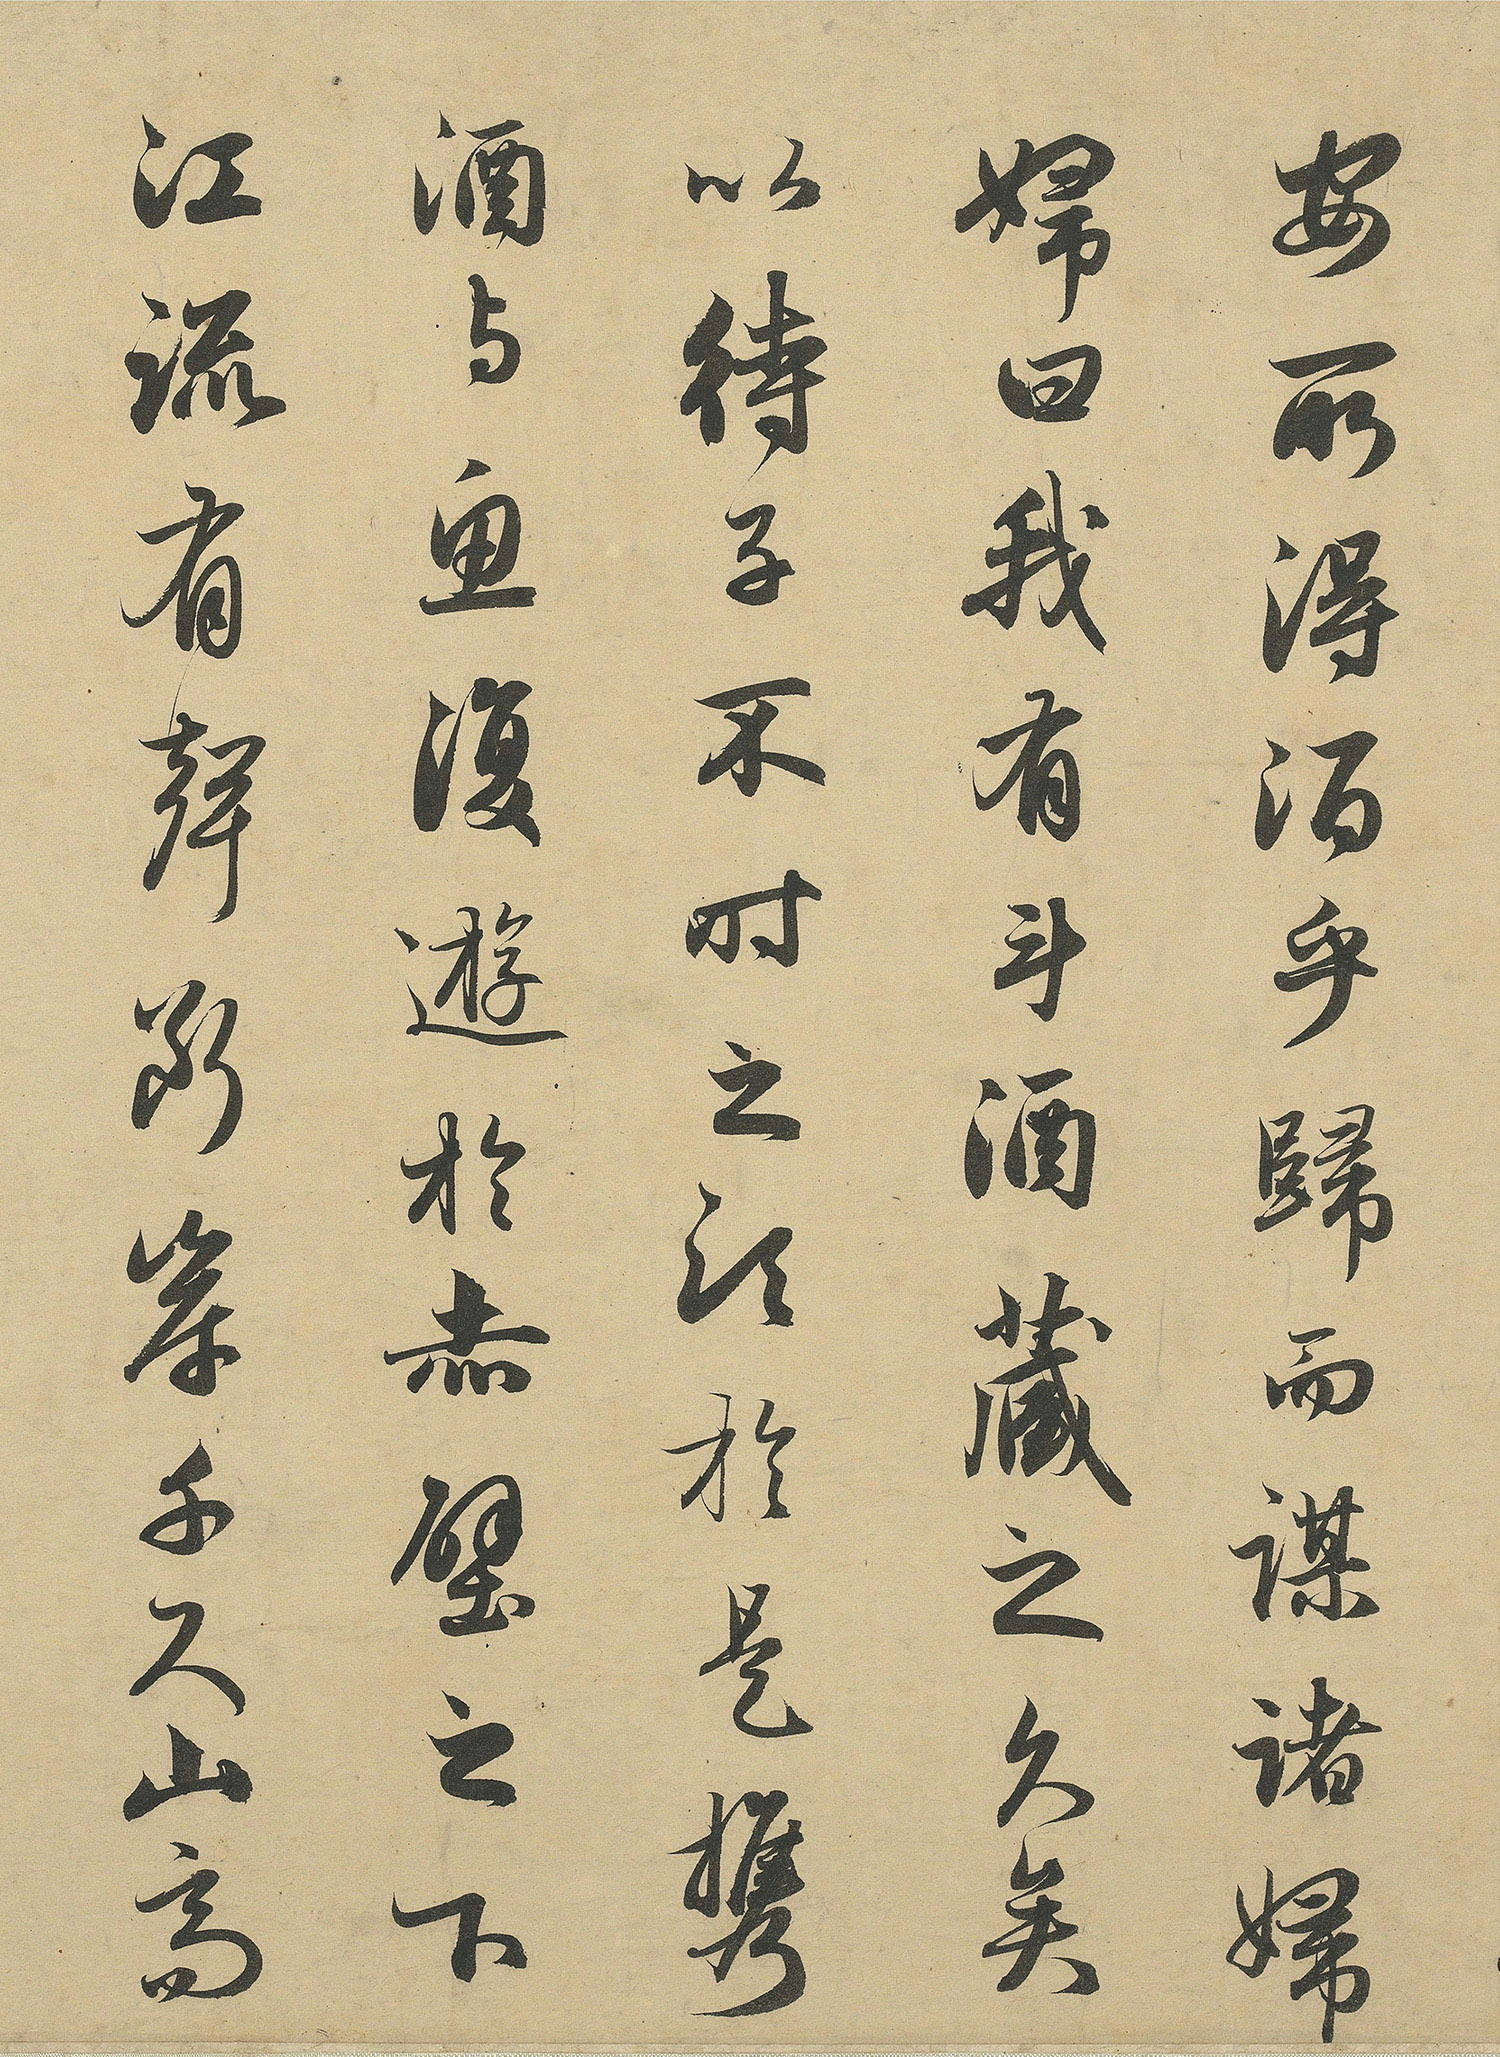 安所得酒乎歸而謀諸婦
婦曰我有斗酒藏之久矣
以待子不時之須於是攜
酒与魚復遊於赤壁之下
江流有聲斷岸千尺山高